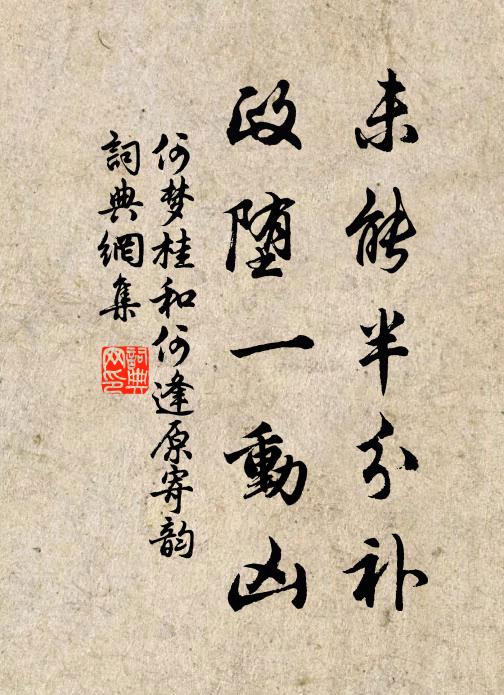 未能半分补
政堕一動凶
何梦桂和何逢原寄韵
詞典網集
詞典网印